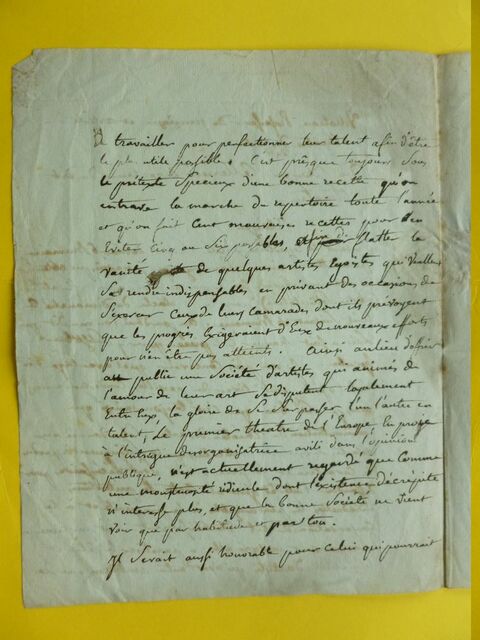 a travailler pour perfectionner leur talent afin d'être
le plus utile possible. C'est presque toujours sous
le prétexte Specieux d'une bonne recette qu'on
entrave la marche du repertoire toute l'année
et qu'on fait Cent mauvaises recettes pour en
Eviter Cinq ou Six passables, flatter la
vanité de quelques artistes Egoïstes qui veulent
Se rendre indispensables en privant des occasions de
S'exercer Ceux de leurs Camarades dont ils prévoyent
que les progrès Exigeraient d'Eux de nouveaux efforts
pour n'en être pas atteints. Ainsi au lieu d'offrir
au public une Société d'artistes qui animés de
l'amour de leur art Se disputent loyalement
Entr'Eux la gloire de Se Surpasser l'un l'autre en
talent, Le premier theatre de l'Europe En proye
à l'intrigue desorganisatrice avili dans l'opinion
publique, n'est actuellement regardé que Comme
une monstruosité ridicule dont l'existence décrepite
n'interesse plus, et que la bonne Société ne vient
voir que par habitude et par ton.
Il Serait aussi honorable pour Celui qui pourrait